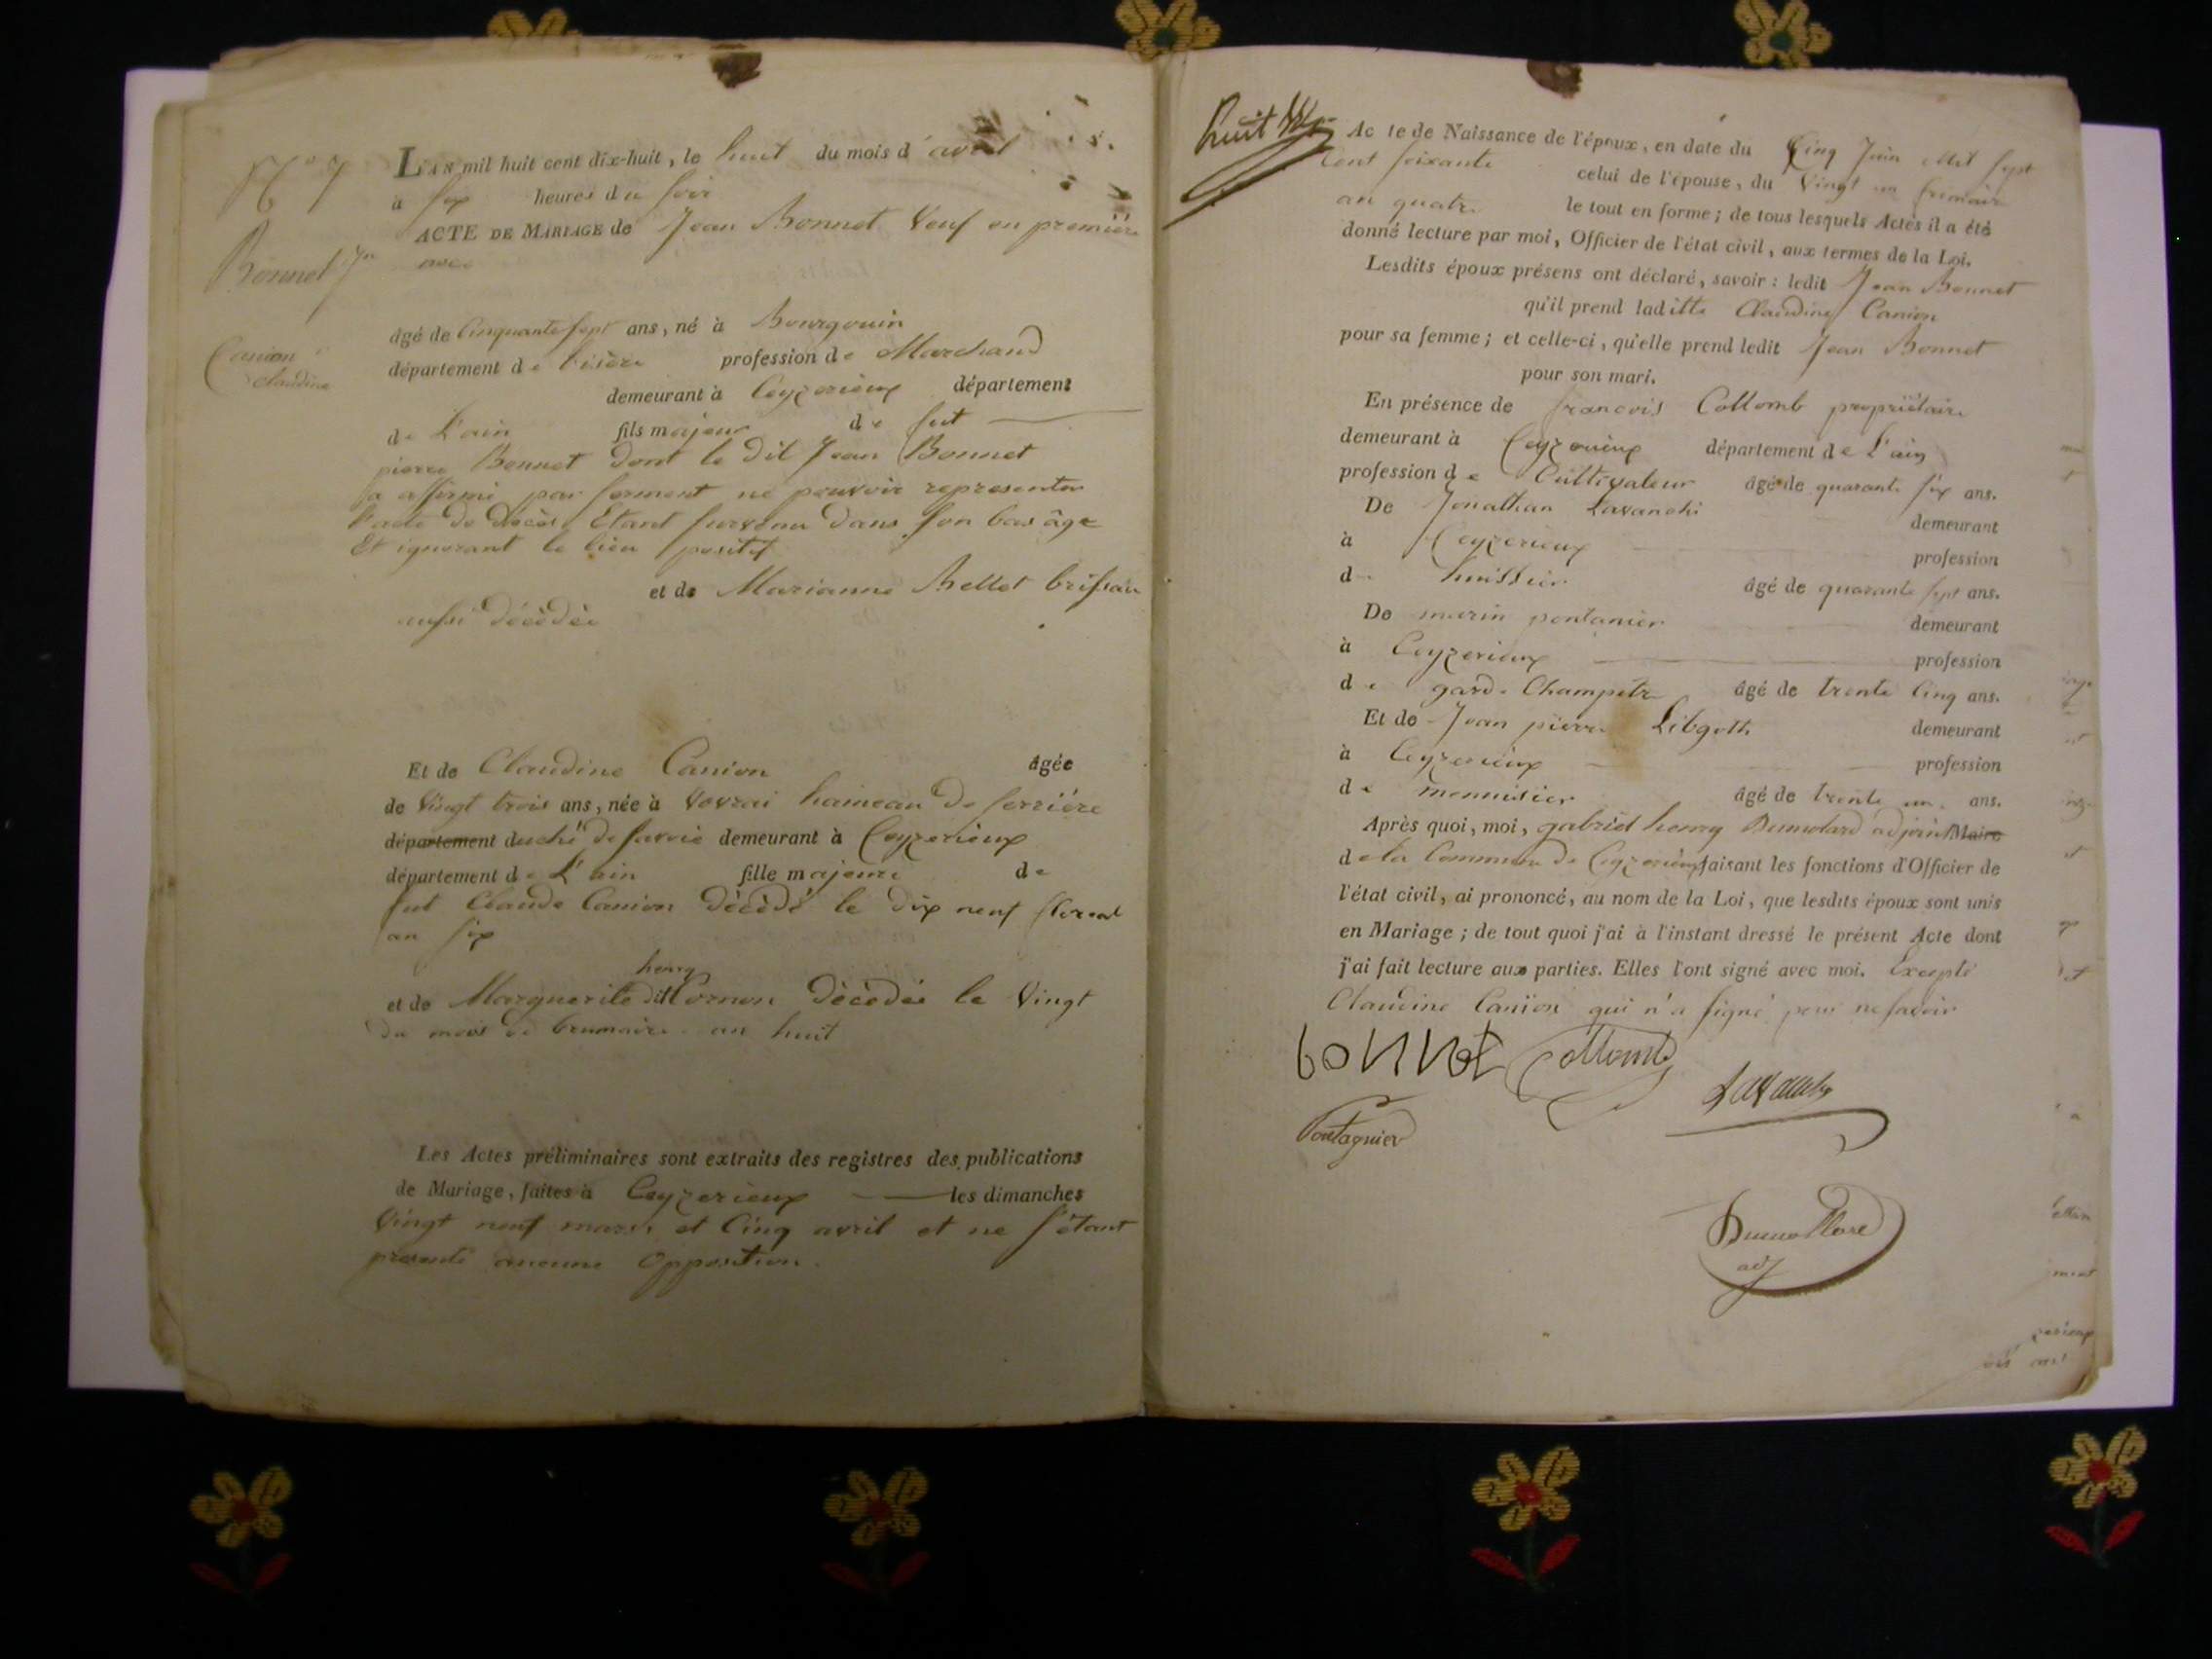 N° 7
Bonnet Jn
Canion
claudine
L'AN mil huit cent dix-huit, le huit du mois d'avril
à six heures du soir
ACTE DE MARIAGE de Jean Bonnet Veuf en première
noce
âgé de Cinquante sept ans, né à Bourgouin
département de l'isère profession de Marchand
demeurant à Ceyzerieux département
de L'ain fils majeur de fut
pierre Bonnet dont le dit Jean Bonnet
a affirmé par serment ne pouvoir representer
l'acte de décès Etant survenu dans son bas âge
Et ignorant le lieu positif
et de Marianne Bellet
aussi décédée
Et de Claudine Canion âgée
de Vingt trois ans, née à Vovrai hameau de serriére
département duché de savoie demeurant à Ceyzerieux
département de L'ain fille majeure de
fut Claude Canion décédé le dix neuf floreal
an six
henry
et de Marguerite dit Cornon décédée le Vingt
du mois de brumaire an huit
Les Actes préliminaires sont extraits des registres des publications
de Mariage, faites à Ceyzerieux les dimanches
Vingt neuf mars et Cinq avril et ne s'étant
presenté aucune Opposition.
huit
Acte de Naissance de l'époux, en date du Cinq Juin Mil sept
Cent soixante celui de l'épouse, du Vingt un frimaire
an quatre le tout en forme; de tous lesquels Actes il a été
donné lecture par moi, Officier de l'état civil, aux termes de la Loi.
Lesdits époux présens ont déclaré, savoir: ledit Jean Bonnet
qu'il prend laditte Claudine Canion
pour sa femme; et celle-ci, qu'elle prend ledit Jean Bonnet
pour son mari.
En présence de francois Collomb propriétaire
demeurant à Ceyzerieux département de L'ain
profession de Cultivateur âgé de quarante six ans.
De Jonathan Lavanchi demeurant
à Ceyzerieux profession
d' huissier âgé de quarante sept ans.
De marin pontanier demeurant
à Ceyzerieux profession
de garde Champetre âgé de trente Cinq ans.
Et de Jean pierre Libgott demeurant
à Ceyzerieux profession
de mennisier âgé de trente un ans.
Après quoi, moi, gabriel henry Dumolard adjoint Maire
de la Commune de Ceyzerieux faisant les fonctions d'Officier de
l'état civil, ai prononcé, au nom de la Loi, que lesdits époux sont unis
en Mariage; de tout quoi j'ai à l'instant dressé le présent Acte dont
j'ai fait lecture aux parties. Elles l'ont signé avec moi. Excepté
Claudine Canion qui n'a signé pour ne savoir
bonnet Collomb
Lavanchy
Pontagnier
Dumollard
adj